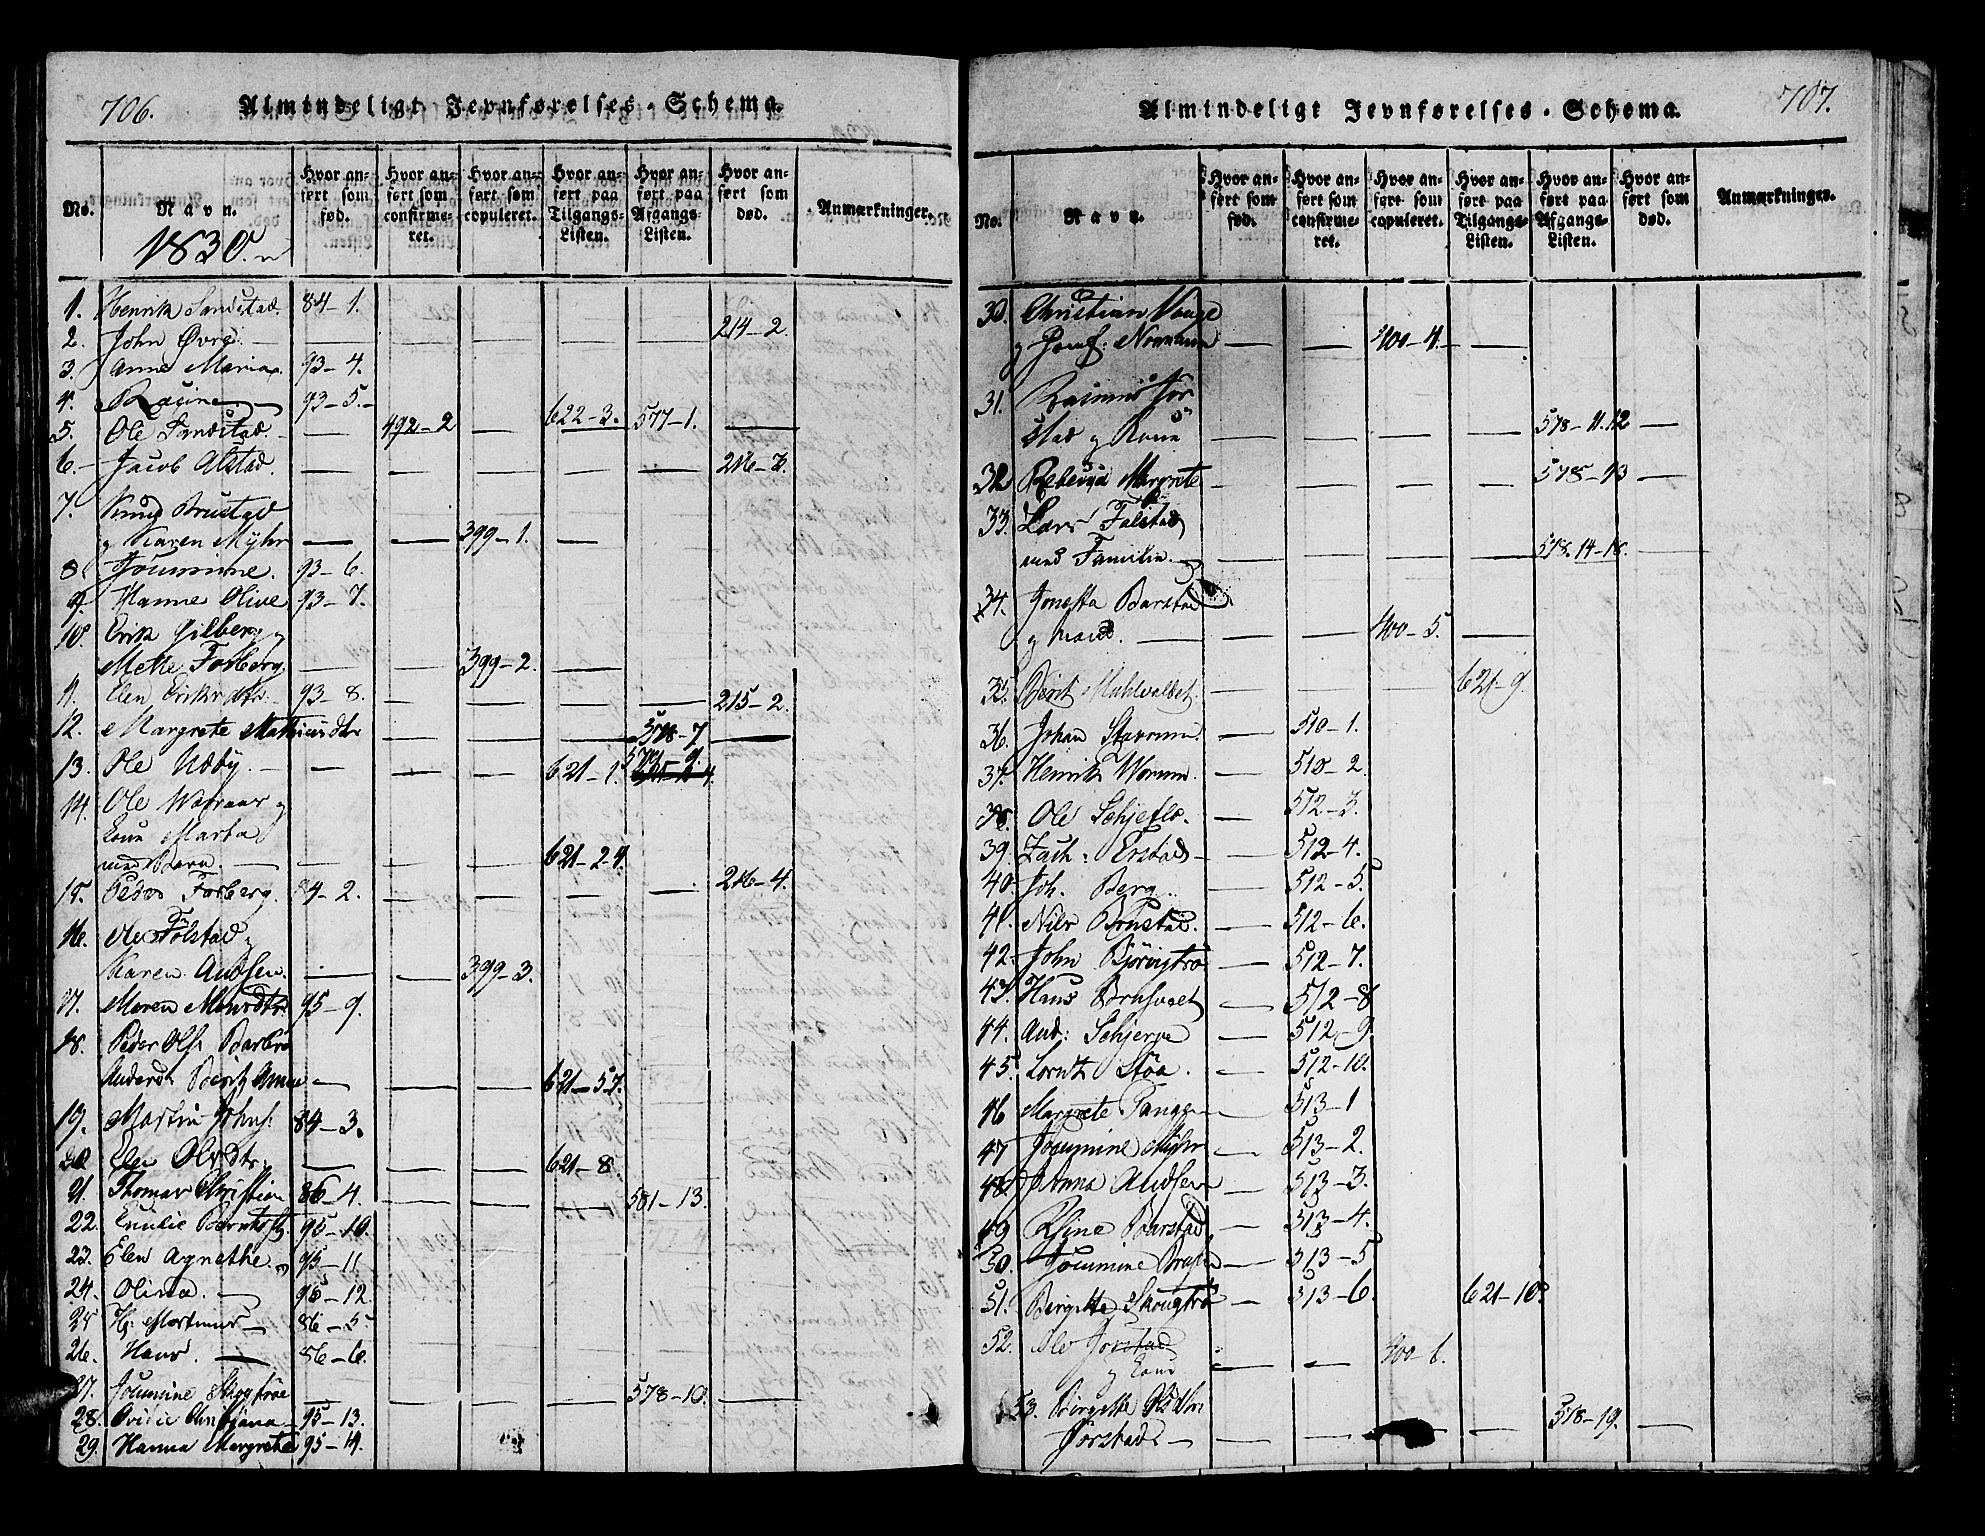 706.
Almindeligt Jevnførelses-Schema.
No.
Navn.
1830.
Hvor anført som fød.
Hvor anført som confirmeret.
Hvor anført som copuleret.
Hvor anført paa Tilgangs-Listen.
Hvor anført paa Afgangs-Listen.
Hvor anført som død.
Anmærkninger.
1. Henrik Sandstad. 84-1.
2. John Øvre. 214-2.
3. Anne Maria. 93-4.
4. 93-5.
5. Ole 492-2 622-3. 577-1.
6. Jacob Alstad.
7. Knud Brustad
og Karen Myhr 399-1.
8. Joumine. 93-6.
9. Hanne Olive 93-7.
10. Erik Gilberg og
Mette Forberg. 399-2.
11. Elen Eriksdtr. 93-8. 215-2.
12. Margrete Mathiasdtr 578-7
13. Ole Udby. 621-1.
14. Ole og
Kone Marta
med Barn. 621-2-4.
15. Peder Forberg. 84-2. 216-4.
16. Ole Følstad og
Karen Andsen. 399-3.
17. Maren 95-9.
18. Peder Ols. Barbro
Andersdt Berit Anne 621-5-7.
19. Martin Johns. 84-3.
20 Elen Olsdtr. 621-8.
21. Thomas Christian 86-4. 581-13.
22. Emilie 95-10.
23. Elen Agnethe. 95-11
24. Olina. 95-12
25 H: Martinus 86-5
26. Hans. 86-6.
27. Joumine 578-10.
28. 95-13.
29. Hanna Margrete 95-14.
707.
Almindeligt Jevnførelses-Schema.
No.
Navn.
Hvor anført som fød.
Hvor anført som confirmeret.
Hvor anført som copuleret.
Hvor anført paa Tilgangs-Listen.
Hvor anført paa Afgangs-Listen.
Hvor anført som død.
Anmærkninger.
30. Christian
og Jomf: 400-4.
31. Rasmus For
stad og Kone 578-11.12
32 Rebecca Margrete 578-13
33. Lars Falstad
med Familie. 578.14-18.
34. Barstad
og mand. 400-5.
35. Berit 621-9.
36. Johan 510-1.
37. Henrik 510-2.
38. Ole Schjeflo. 512-3.
39. Zach: Erstad 512-4.
40. Joh. Berg. 512-5.
41. Nils Brustad. 512-6.
42. John 512-7.
43. Hans 512-8
44. And: Schjerve 512-9
45. Lorntz Støa. 512-10.
46 Margrete 513-1
47 Joumine Myhr 513-2.
48. Anna Andsen 513-3.
49 Barstad 513-4.
50. Joumine 513-5
51. Bergitte 513-6. 621-10.
52. Ole Jorstad
og Kone 400-6.
53. Birgitte
Jorstad 578-19.